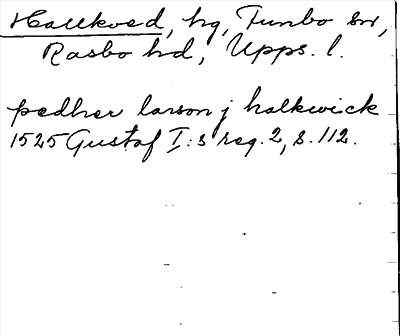 Hallkved, hg, Funbo sn,
Rasbo hd, Upps. l.
pedher larson j halkwick
1525 Gustaf I:s reg. 2, s. 112.